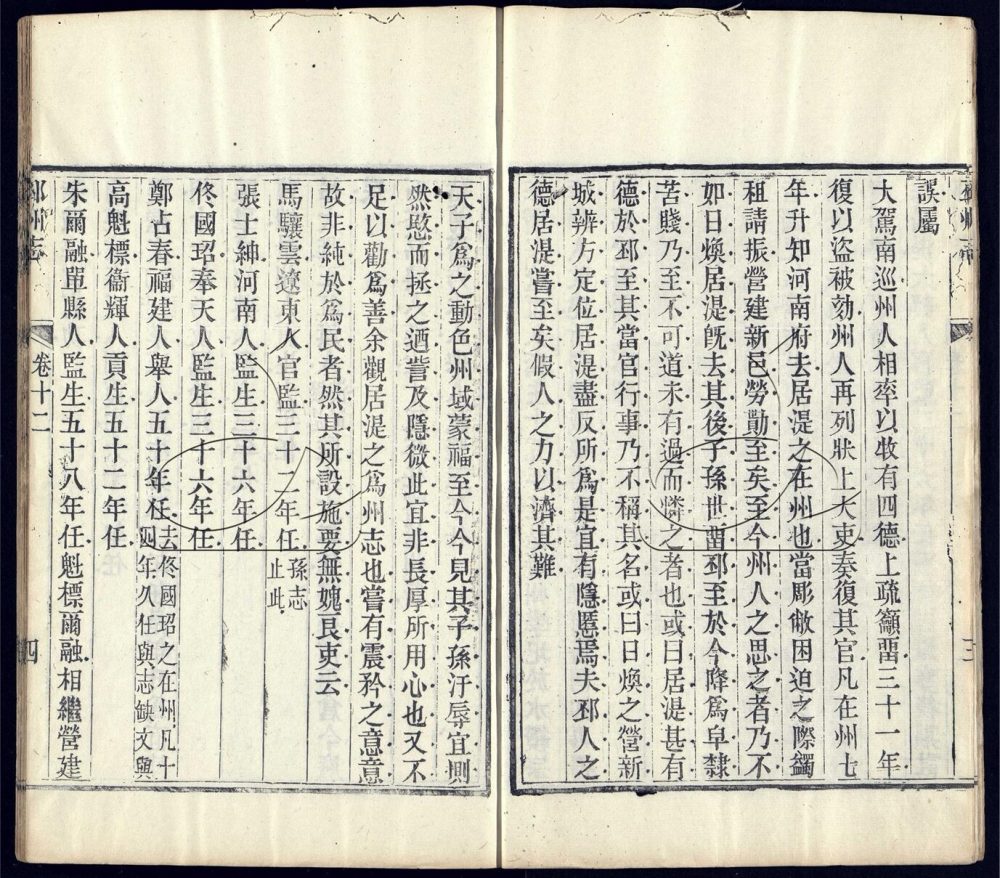 誤屬
大駕南巡州人相率以牧有四德上疏籲畱三十一年
復以盜被劾州人再列狀上大吏奏復其官凡在州七
年升知河南府去居湜之在州也當彫敝困迫之際蠲
租請振營建新邑勞勩至矣至今州人之思之者乃不
如日煥居湜旣去其後子孫世畱邳至於今降爲皁隸
苦賤乃至不可道未有過而憐之者也或曰居湜甚有
德於邳至其當官行事乃不稱其名或曰日煥之營新
城辨方定位居湜盡反所爲是宜有隱慝焉夫邳人之
德居湜嘗至矣假人之力以濟其難
天子爲之動色州域蒙福至今今見其子孫汙辱宜惻
然愍而拯之迺訾及隱微此宜非長厚所用心也又不
足以勸爲善余觀居湜之爲州志也嘗有震矜之意意
故非純於爲民者然其所設施要無媿艮吏云
馬驤雲遼東人官監三十二年任孫志止此
張士紳河南人監生三十六年任
佟國玿奉天人監生三十六年任
鄭占春福建人舉人五十年任去佟國玿之在州凡十四年久任與志缺文與
高魁標衞輝人貢生五十二年任
朱爾融單縣人監生五十八年任魁標爾融相繼營建
邳州志 卷十二 四